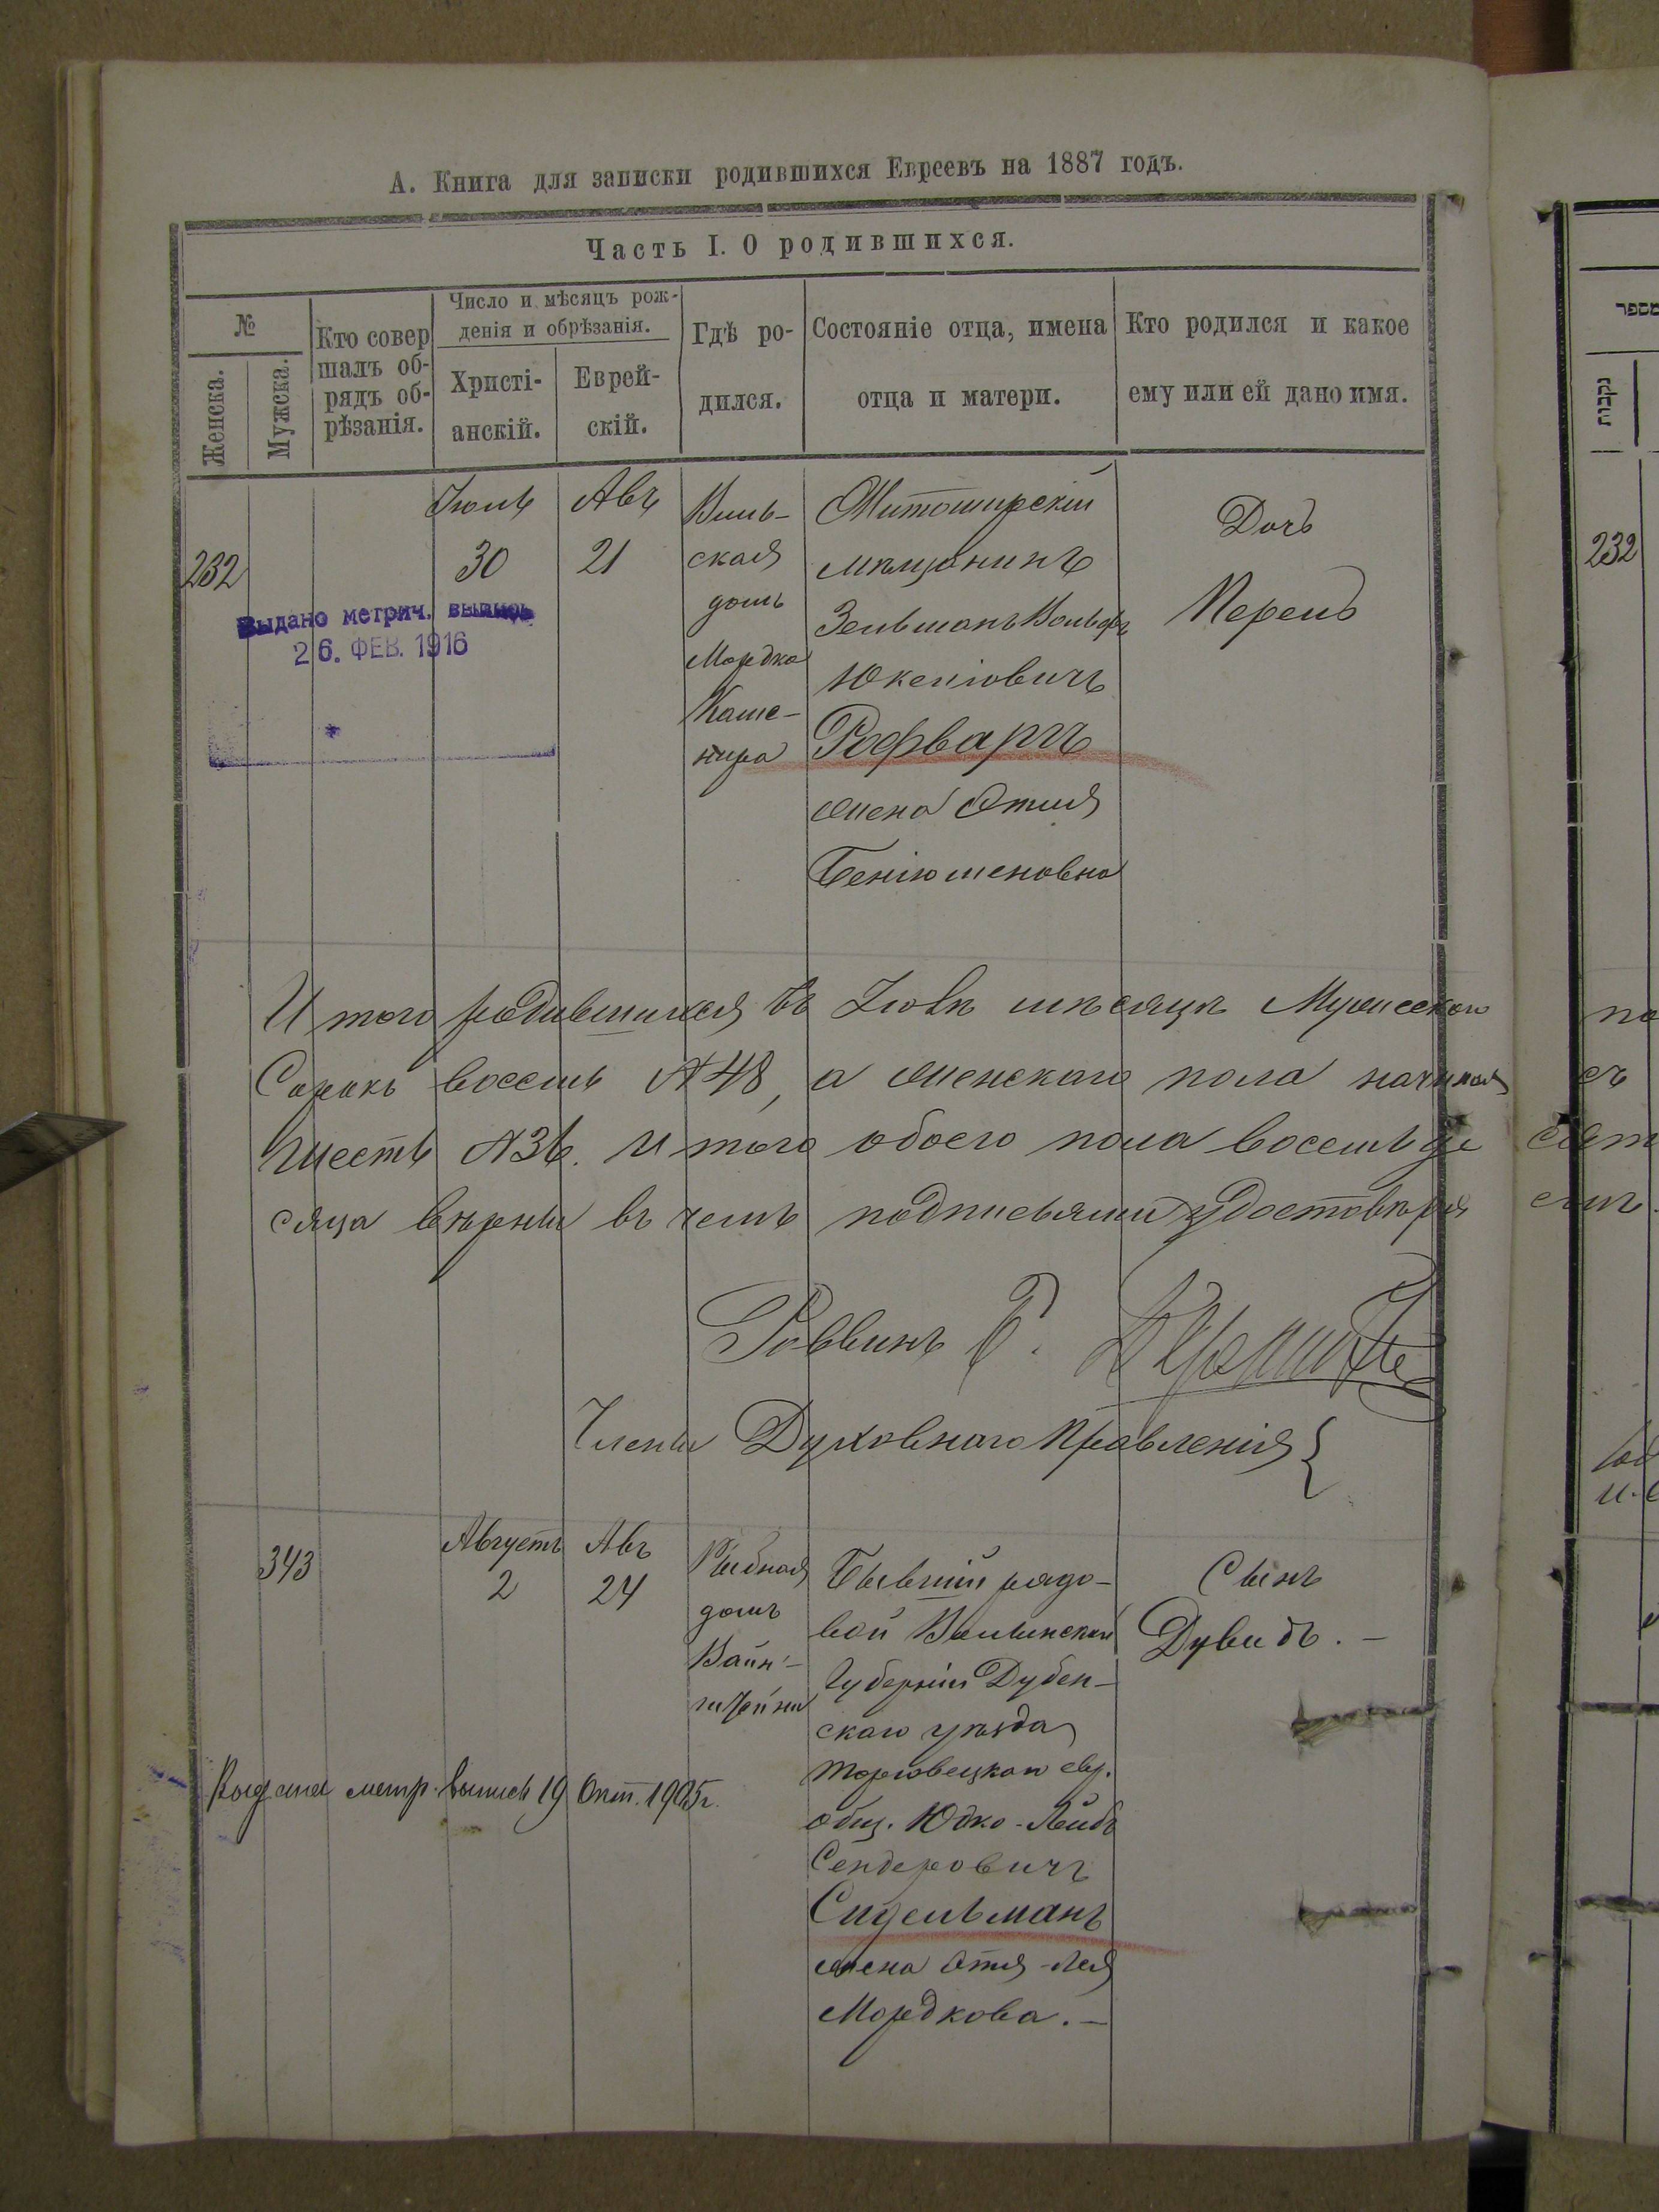 А. Книга для записки родившихся Евреевъ на 1887 годъ.
Часть I. О родившихся.
№
Женска.
Мужска.
Кто совер
шалъ об-
рядъ об-
рѣзанія.
Число и мѣсяцъ рож-
денія и обрѣзанія.
Христі-
анскій.
Еврей-
скій.
Гдѣ ро-
дился.
Состояніе отца, имена
отца и матери.
Кто родился и какое
ему или ей дано имя.
232
Іюль
30
Авъ
21
Виль-
ская
домъ
Мордка
Каше-
нира
Житомирскій
мѣщанинъ
Зельманъ Вольфъ
Рофвартъ
жена Этля
Беніюменовна
Дочь
Перель
Выдано метрич. выпись
26. ФЕВ. 1916
И того родившихся въ Іюлѣ мѣсяцѣ Мужескаго
Сорокъ восемь №48, а женскаго пола
шесть №36. И того обоего пола восемьде
сяца вѣрны въ чемъ подписями удостовѣря
Раввинъ
Члены Духовнаго Правленія {
343
Августъ
2
Авъ
24
Рыбная
домъ
Вайн-
штейна
Бывшій рядо-
вой Волынской
Губерніи Дубен-
скаго уѣзда
Торговецкаго евр.
общ. Юдко-Лейбъ
Сендеровичъ
Сидельманъ
жена Этля-Лея
Мордкова. —
Сынъ
Дувидъ. —
Выдана метр. выпись 19 Окт. 1905 г.
מספר
נקבות
232